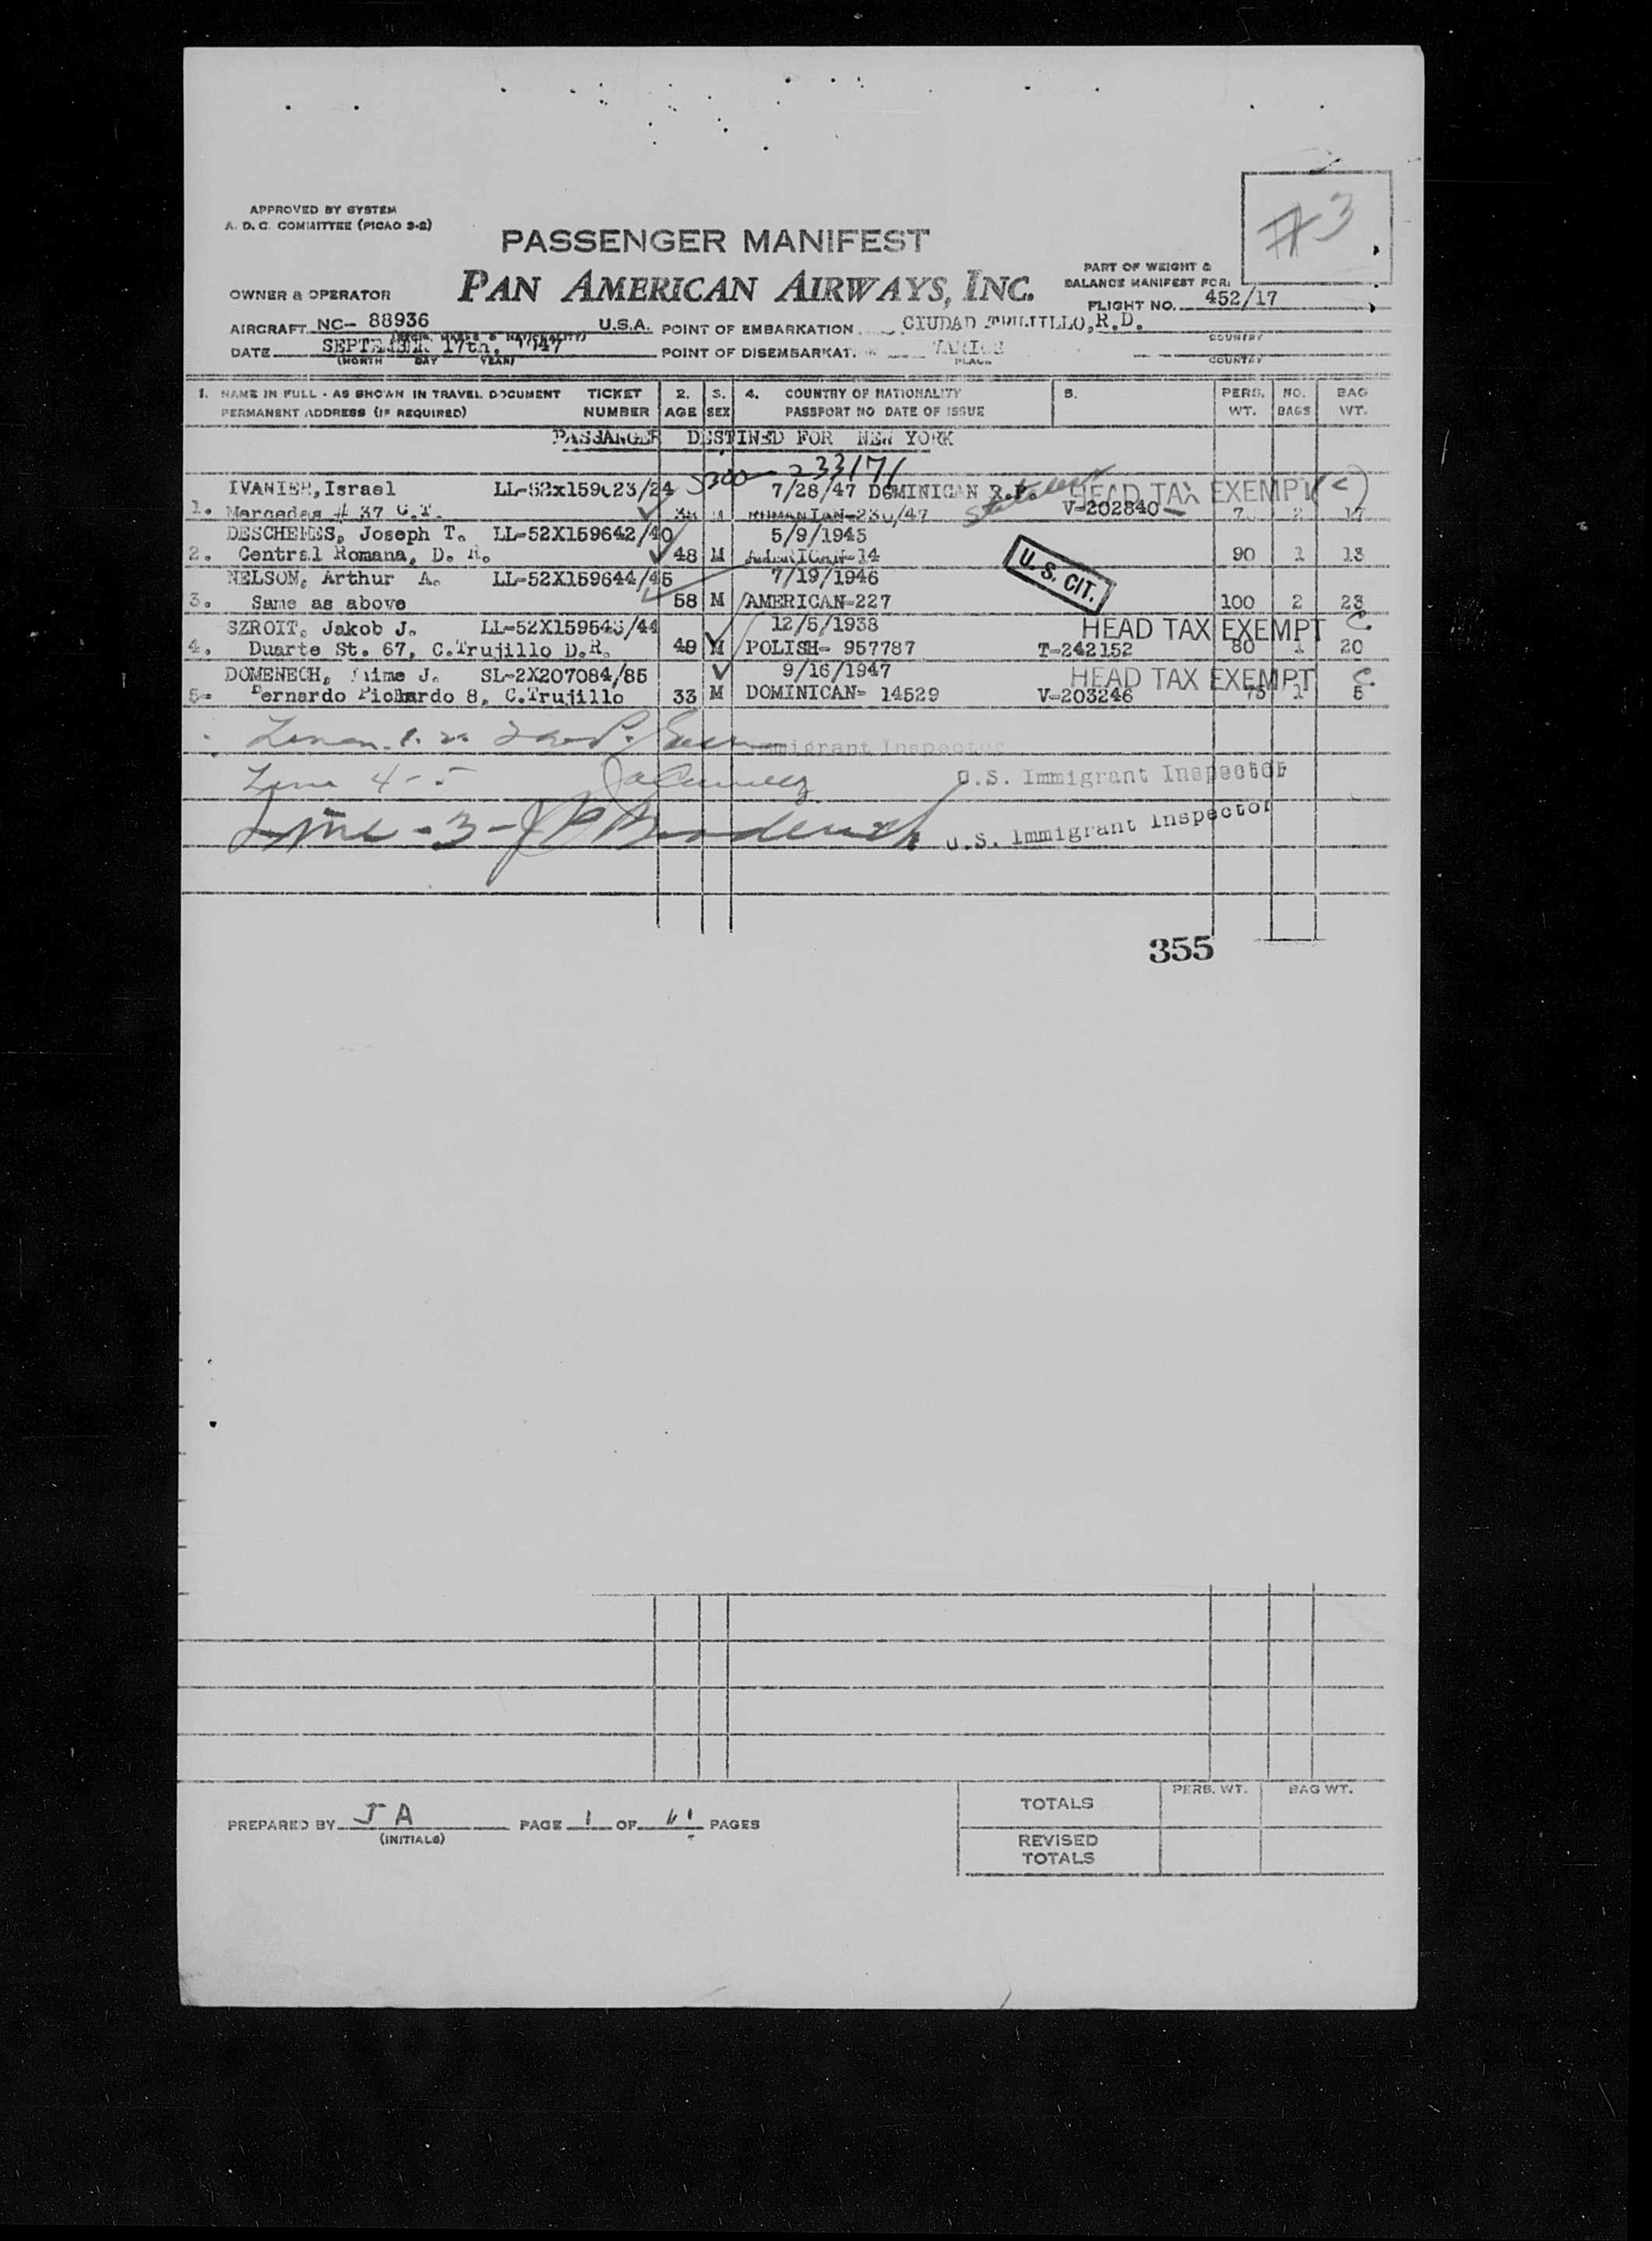 APPROVED BY SYSTEM
A. D. C. COMMITTEE (PICAO 3-2)
#3
PASSENGER MANIFEST
PAN AMERICAN AIRWAYS, INC.
OWNER & OPERATOR
PART OF WEIGHT &
BALANCE MANIFEST FOR:
FLIGHT NO. 452/17
AIRCRAFT NC- 88936 U.S.A. POINT OF EMBARKATION CIUDAD TRUJILLO, R.D.
COUNTRY
DATE SEPTEMBER 17th, 1947 POINT OF DISEMBARKAT. VARIOS
(MONTH DAY YEAR) PLACE COUNTRY
1. NAME IN FULL - AS SHOWN IN TRAVEL DOCUMENT TICKET 2. 3. 4. COUNTRY OF NATIONALITY 5. PERS. NO. BAG
PERMANENT ADDRESS (IF REQUIRED) NUMBER AGE SEX PASSPORT NO DATE OF ISSUE WT. BAGS WT.
PASSANGER DESTINED FOR NEW YORK
5300-233171
IVANIER, Israel LL-52x159623/24 7/28/47 DOMINICAN R.P. HEAD TAX EXEMPT (C)
1. Mercedes # 37 C.T. 38 M RUMANIAN-230/47 V-202840 2 17
Joseph T. LL-52X159642/40 5/9/1945
2. Central Romana, D. R. 48 M AMERICAN-14 90 1 13
U. S. CIT.
NELSON, Arthur A. LL-52X159644/45 7/19/1946
3. Same as above 58 M AMERICAN-227 100 2 23
SZROIT, Jakob J. LL-52X159643/44 12/5/1938 HEAD TAX EXEMPT C.
4. Duarte St. 67, C.Trujillo D.R. 49 M POLISH- 957787 T-242152 80 1 20
DOMENECH, Jaime J. SL-2X207084/85 9/16/1947 HEAD TAX EXEMPT C.
5- Bernardo Pichardo 8, C.Trujillo 33 M DOMINICAN- 14529 V-203246 75 1 5
Immigrant Inspector
Line 4-5 U.S. Immigrant Inspector
Line -3- U.S. Immigrant Inspector
355
PREPARED BY JA PAGE 1 OF PAGES
(INITIALS)
PERS. WT. BAG WT.
TOTALS
REVISED
TOTALS